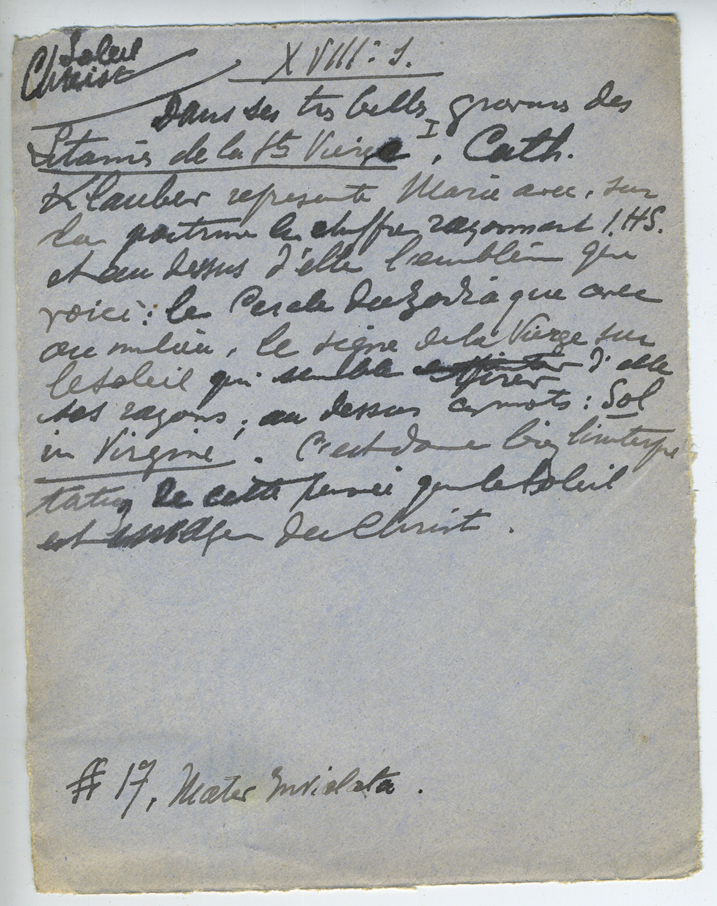 Soleil
Christ
XVIII: s.
Dans ses très belles gravures des
Litanies de la Ste Vierge I, Cath.
Klauber représente Marie avec, sur
la poitrine le chiffre rayonnant I.HS.
et au dessus d'elle l'emblème que
voici: le Cercle du Zodiaque avec
au milieu, le signe de la Vierge sur
le soleil qui semble tirer d'elle
ses rayons; au dessus ces mots: Sol
in Virgine. C'est donc bien l'interpré
tation de cette pensée que le Soleil
est image du Christ.
# 17, Mater Inviolata.